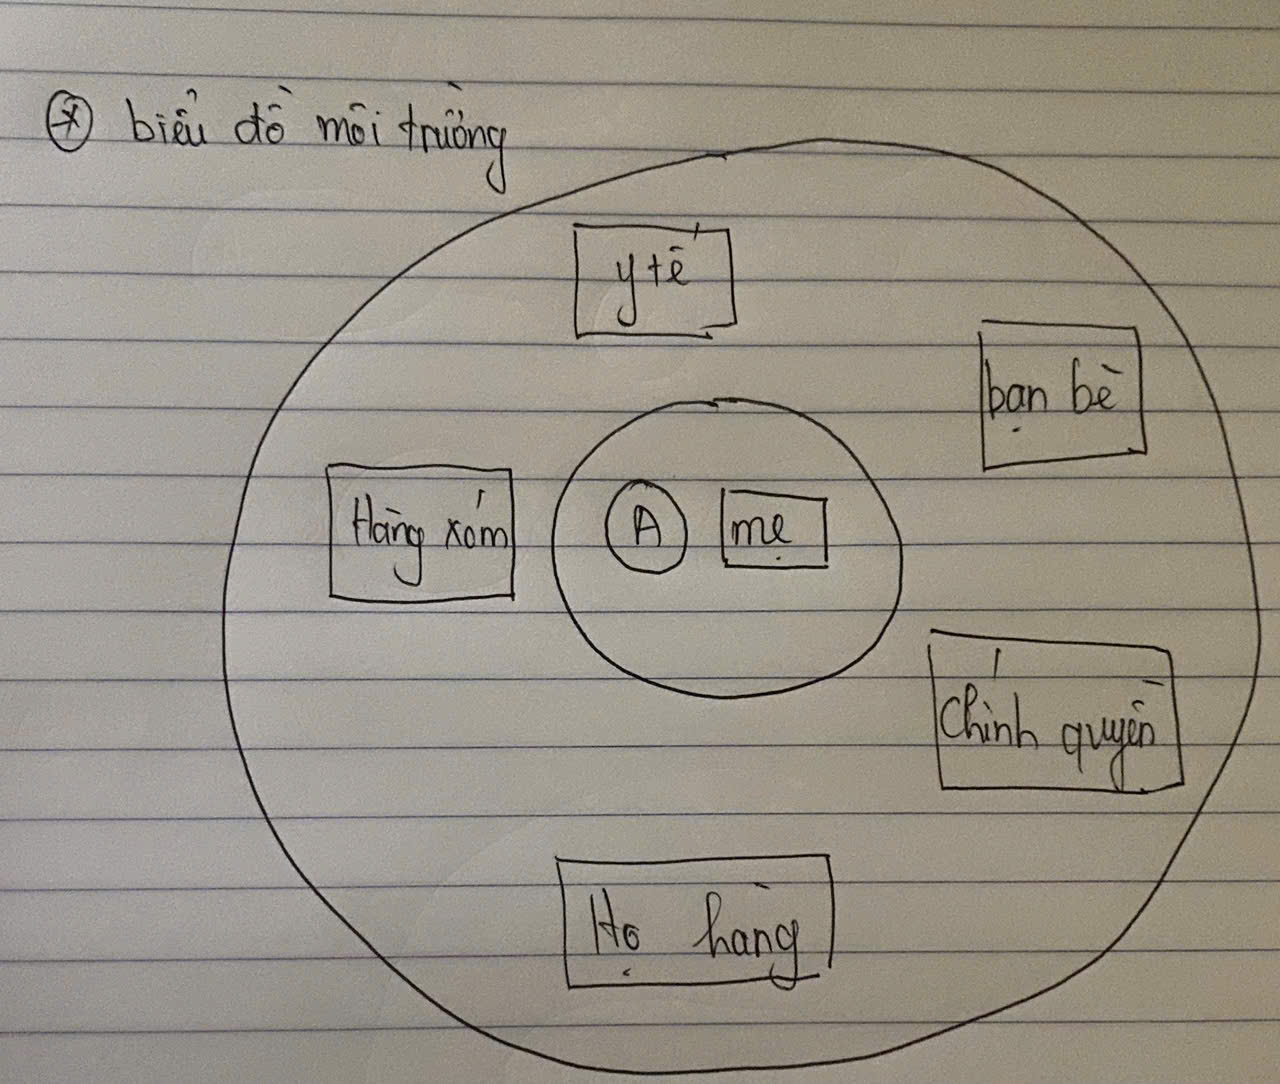 ⊛ biểu đồ môi trường
y tế
bạn bè
Hàng xóm
A
mẹ
Chính quyền
Họ hàng